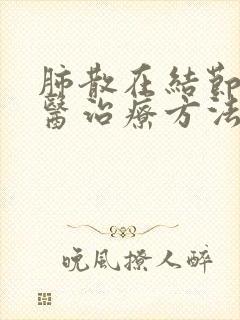 肺散在結節
醫治療方法
晚風撩人醉